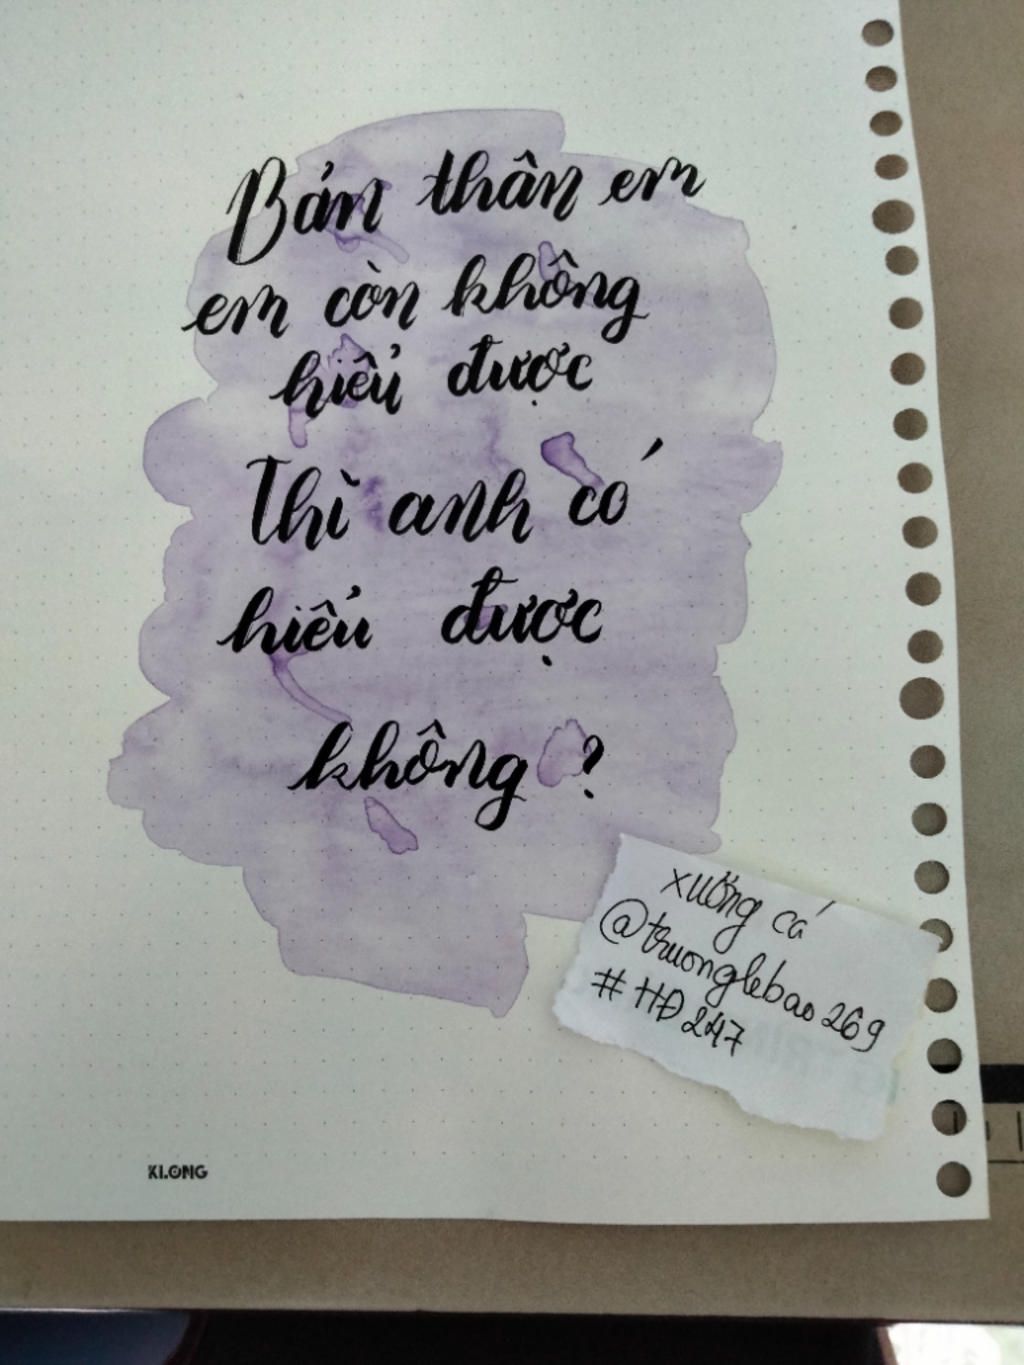 Bản thân em
em còn không
hiểu được
Thì anh có
hiểu được
không ?
xưởng cá
@truonglebao269
#HĐ247
KLONG